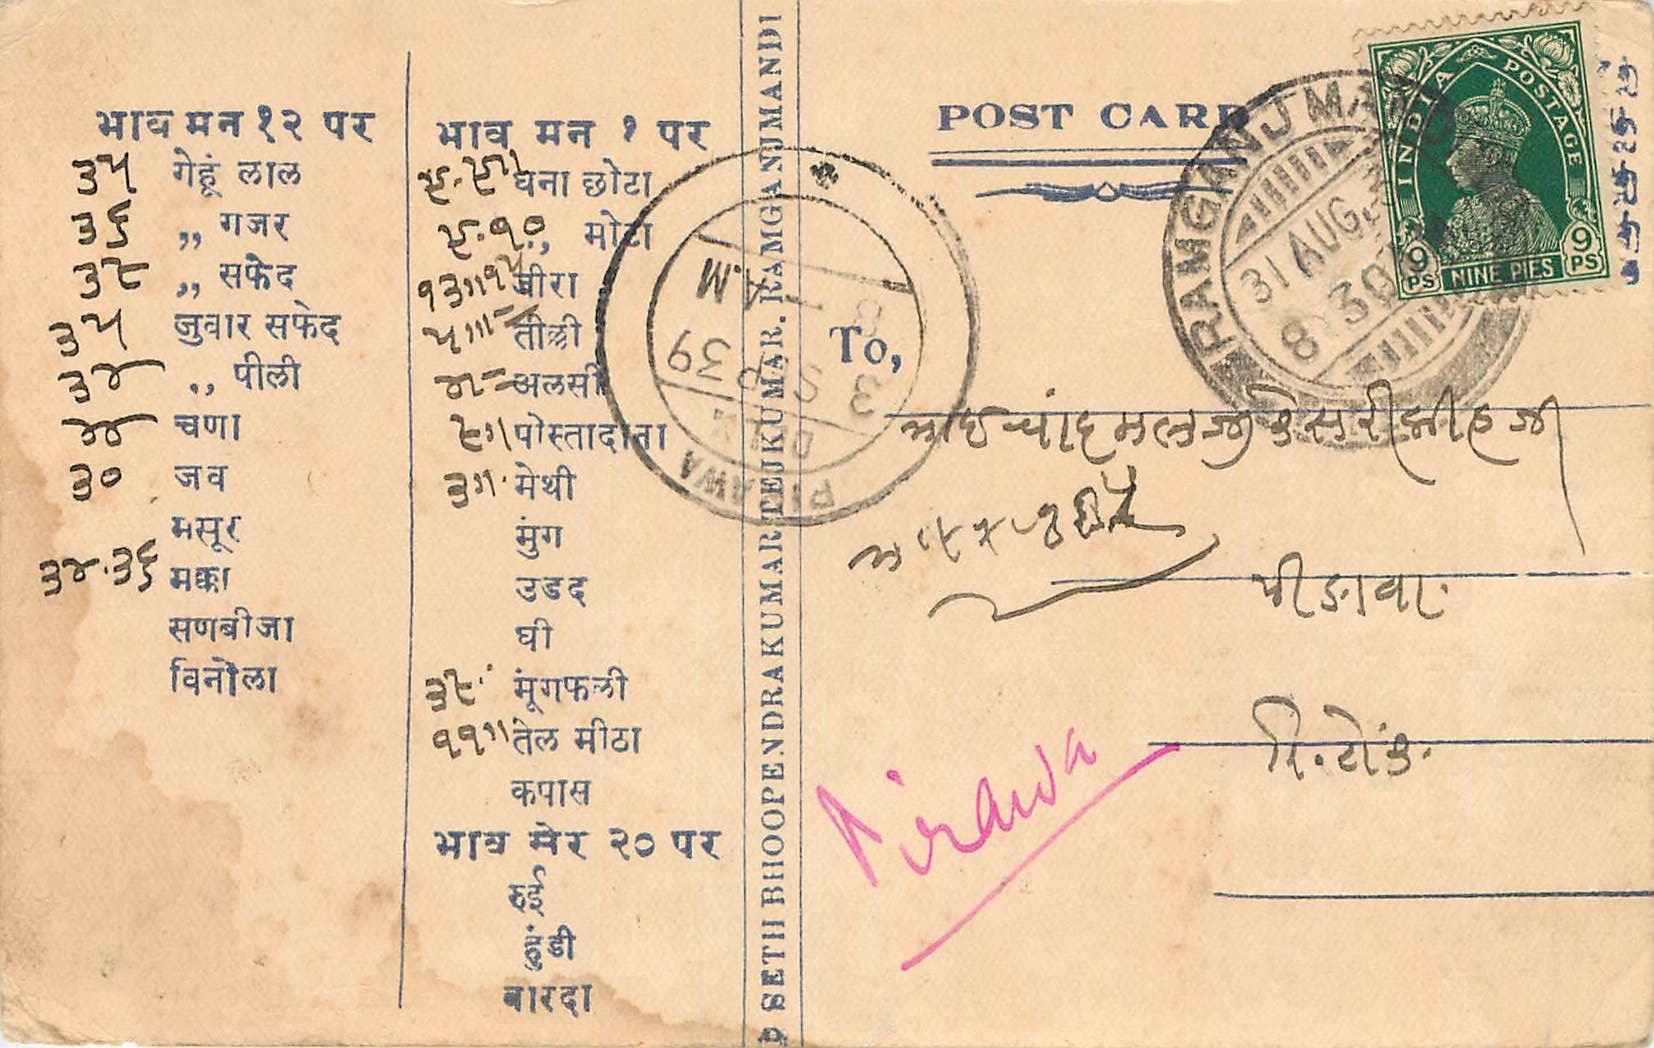 भाव मन १२ पर
३५ गेहूं लाल
३६ ,, गजर
३८ ,, सफेद
३५ जुवार सफेद
३४ ,, पीली
४४ चणा
३० जव
मसूर
३४.३६ मक्का
सणबीजा
विनोला
भाव मन १ पर
धना छोटा
,, मोटा
जीरा
तीली
अलसी
पोस्तादाना
मेथी
मुंग
उडद
घी
३८ मूंगफली
११॥ तेल मीठा
कपास
भाव सेर २० पर
रुई
हुंडी
बारदा
SETH BHOOPENDRAKUMAR TEJKUMAR, RAMGANJMANDI
POST CARD
INDIA POSTAGE
9 PS NINE PIES 9 PS
RAMGANJ MANDI
31 AUG.
8-30
PIRAWA
3 SEP 39
8 - A.M
To,
भाई चांदमलजी केसरीमीहजी
पीडावा
रि. टोंक.
Pirawa